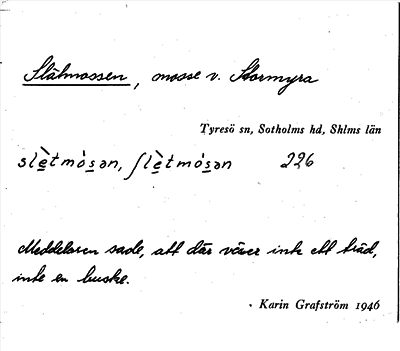 Slätmossen, mosse v. Stormyra
Tyresö sn, Sotholms hd, Shlms län
slètmósən, ʃlètmósən 226
Meddelaren sade, att där växer inte ett träd,
inte en buske.
Karin Grafström 1946